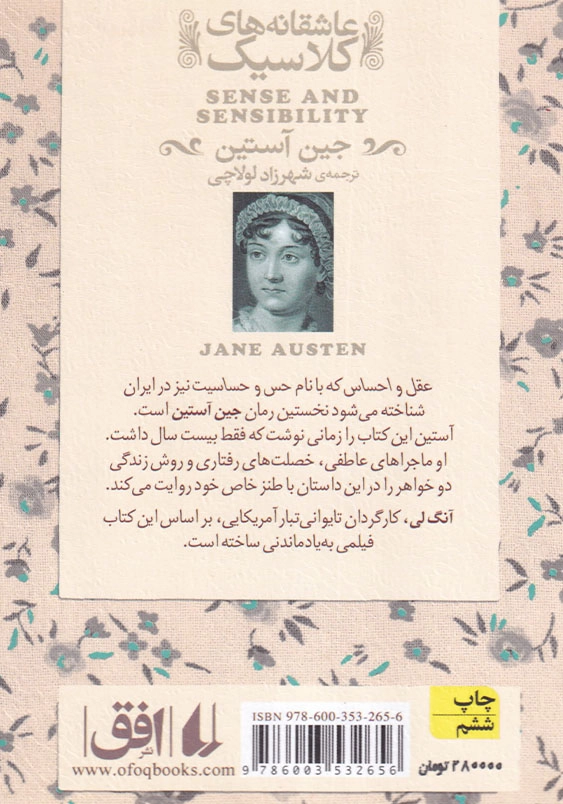 عاشقانه‌های
کلاسیک
SENSE AND
SENSIBILITY
جین آستین
ترجمه‌ی شهرزاد لولاچی
JANE AUSTEN
عقل و احساس که با نام حس و حساسیت نیز در ایران
شناخته می‌شود نخستین رمان جین آستین است.
آستین این کتاب را زمانی نوشت که فقط بیست سال داشت.
او ماجراهای عاطفی، خصلت‌های رفتاری و روش زندگی
دو خواهر را در این داستان با طنز خاص خود روایت می‌کند.
آنگ لی، کارگردان تایوانی‌تبار آمریکایی، بر اساس این کتاب
فیلمی به‌یادماندنی ساخته است.
چاپ
ششم
۲۸۰۰۰۰ تومان
ISBN 978-600-353-265-6
9 786003 532656
نشر افق
www.ofoqbooks.com